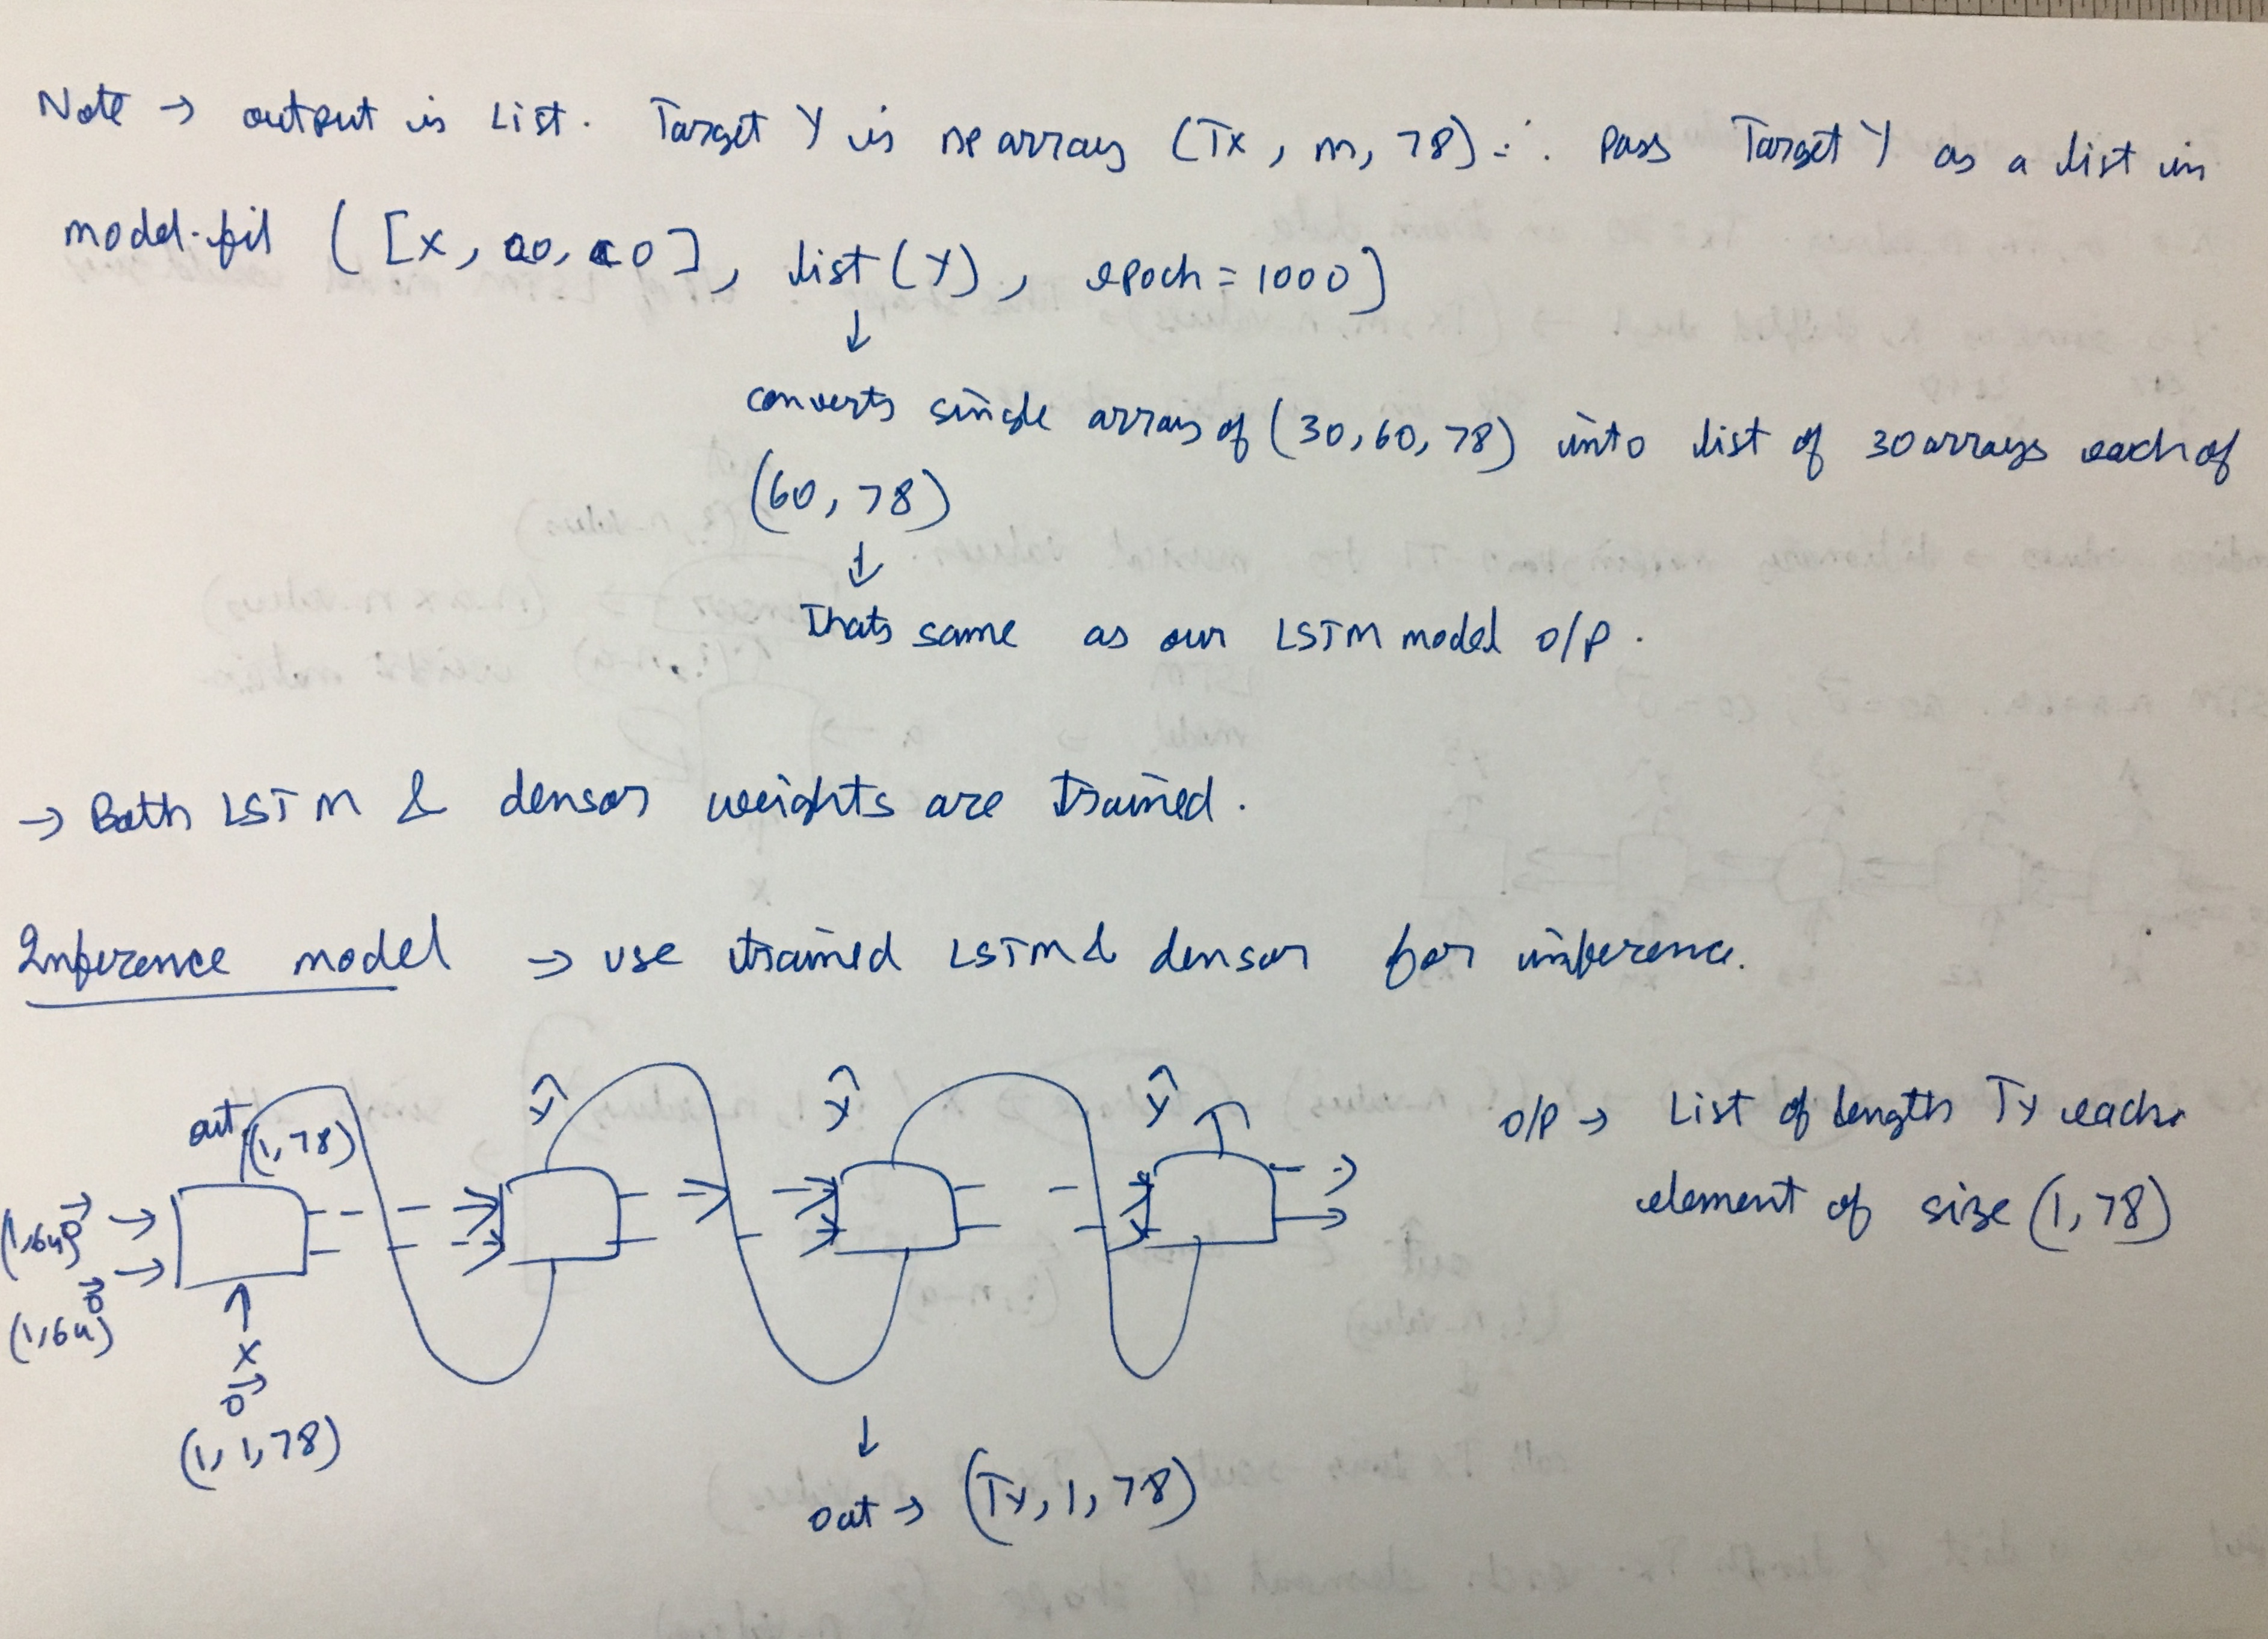 Note → output is List. Target Y is np array (Tx, m, 78) ∴ Pass Target Y as a list in
model.fit ([x, a0, c0], list(Y), epoch = 1000)
↓
converts single array of (30, 60, 78) into list of 30 arrays each of
(60, 78)
↓
Thats same as our LSTM model O/P.
→ Both LSTM & densor weights are trained.
Inference model → use trained LSTM & densor for inference.
out (1, 78)
ŷ ŷ ŷ
O/P → List of length Ty each
element of size (1, 78)
(1, 64) 0⃗ →
0⃗ →
(1, 64)
↑
x
0⃗
(1, 1, 78)
↓
out → (Ty, 1, 78)